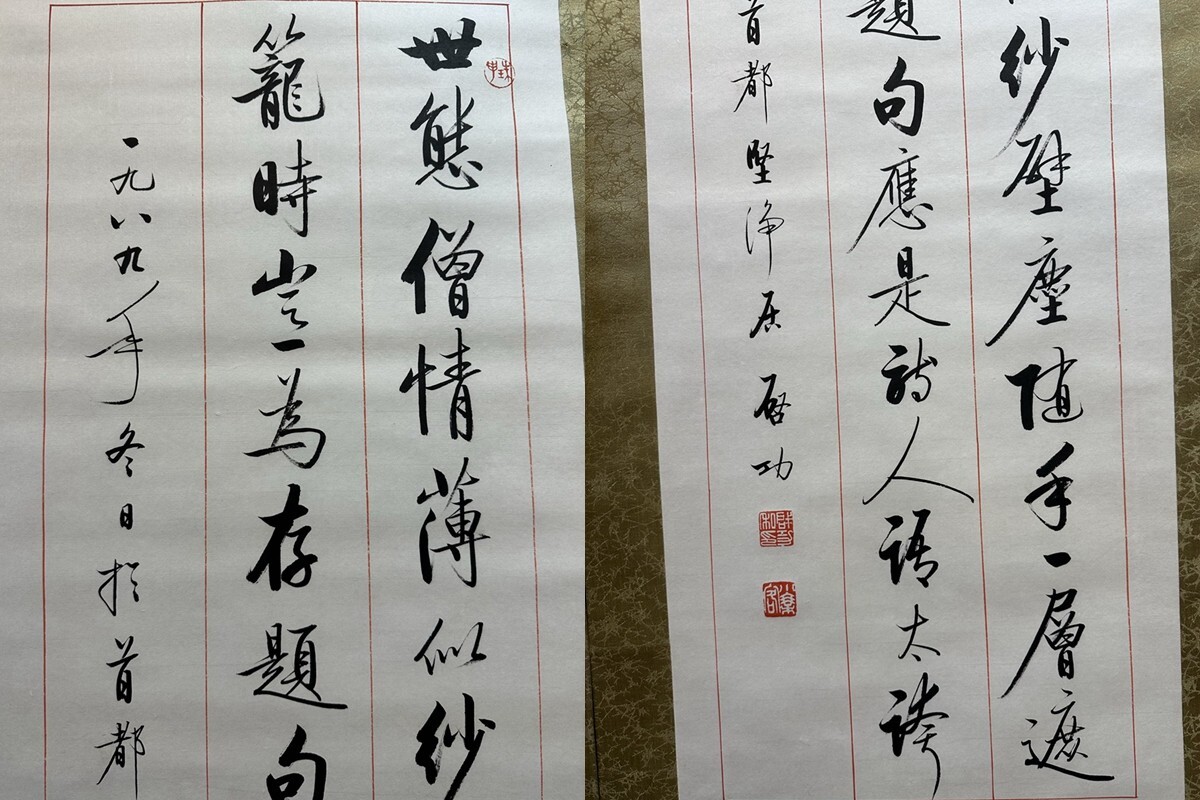 世態僧情薄似紗
籠時豈為存題句
一九八九年冬日於首都
紗壁塵隨手一層遮
題句應是詩人語太誇
首都堅淨居 啓功